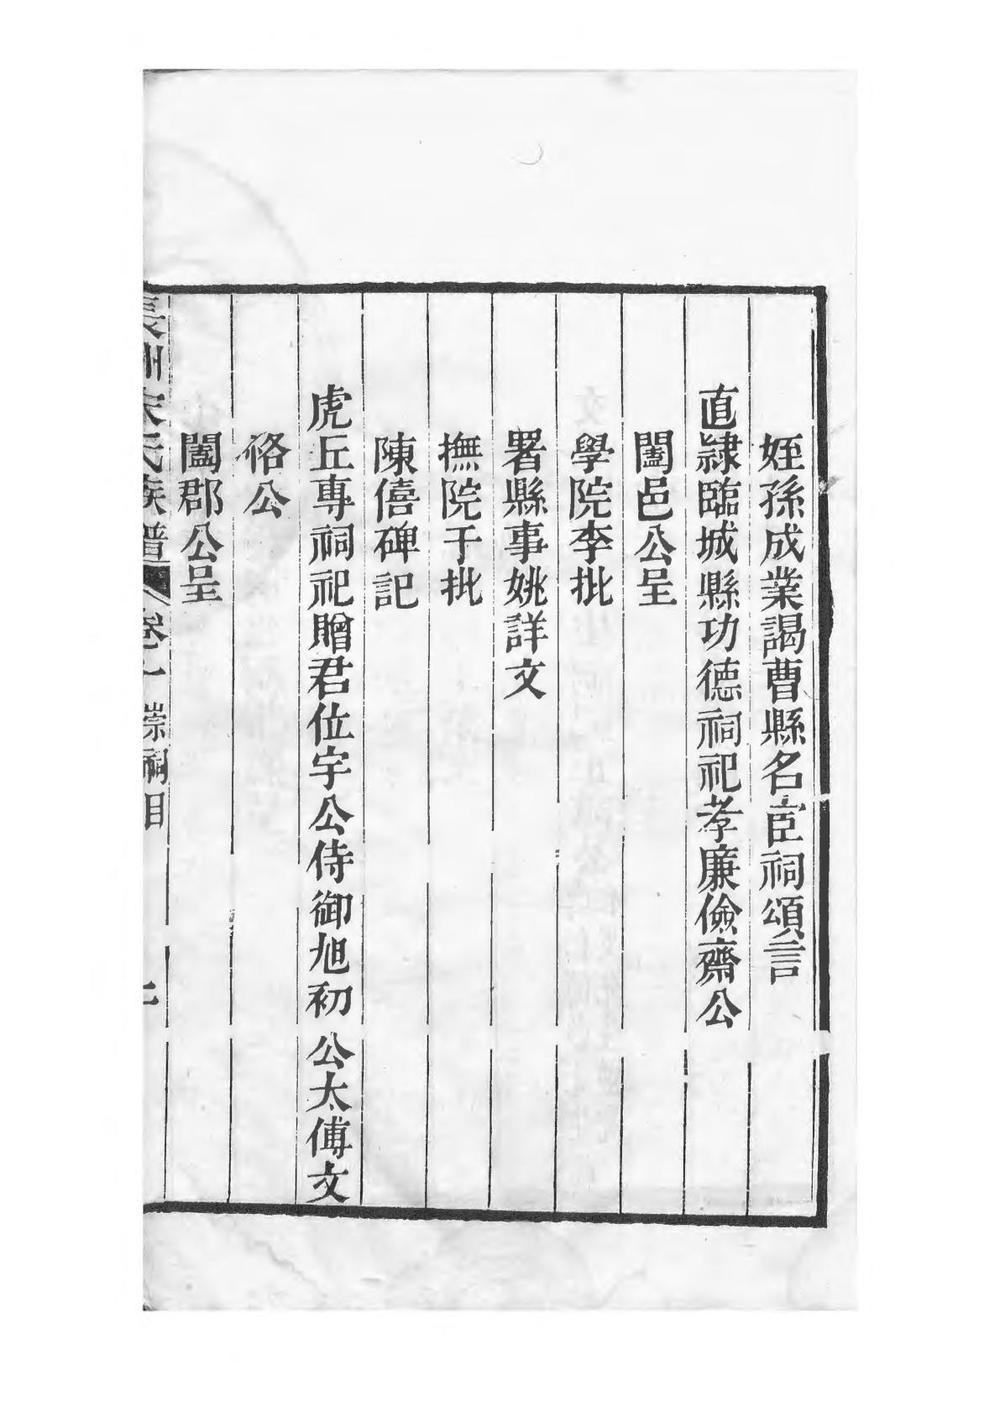 姪孫成業謁曹縣名宦祠頌言
直隸臨城縣功德祠祀孝廉儉齋公
闔邑公呈
學院李批
署縣事姚詳文
撫院于批
陳僖碑記
虎丘專祠祀贈君位宇公侍御旭初 公太傅文
恪公
闔郡公呈
長洲宋氏族譜 卷 崇祠目